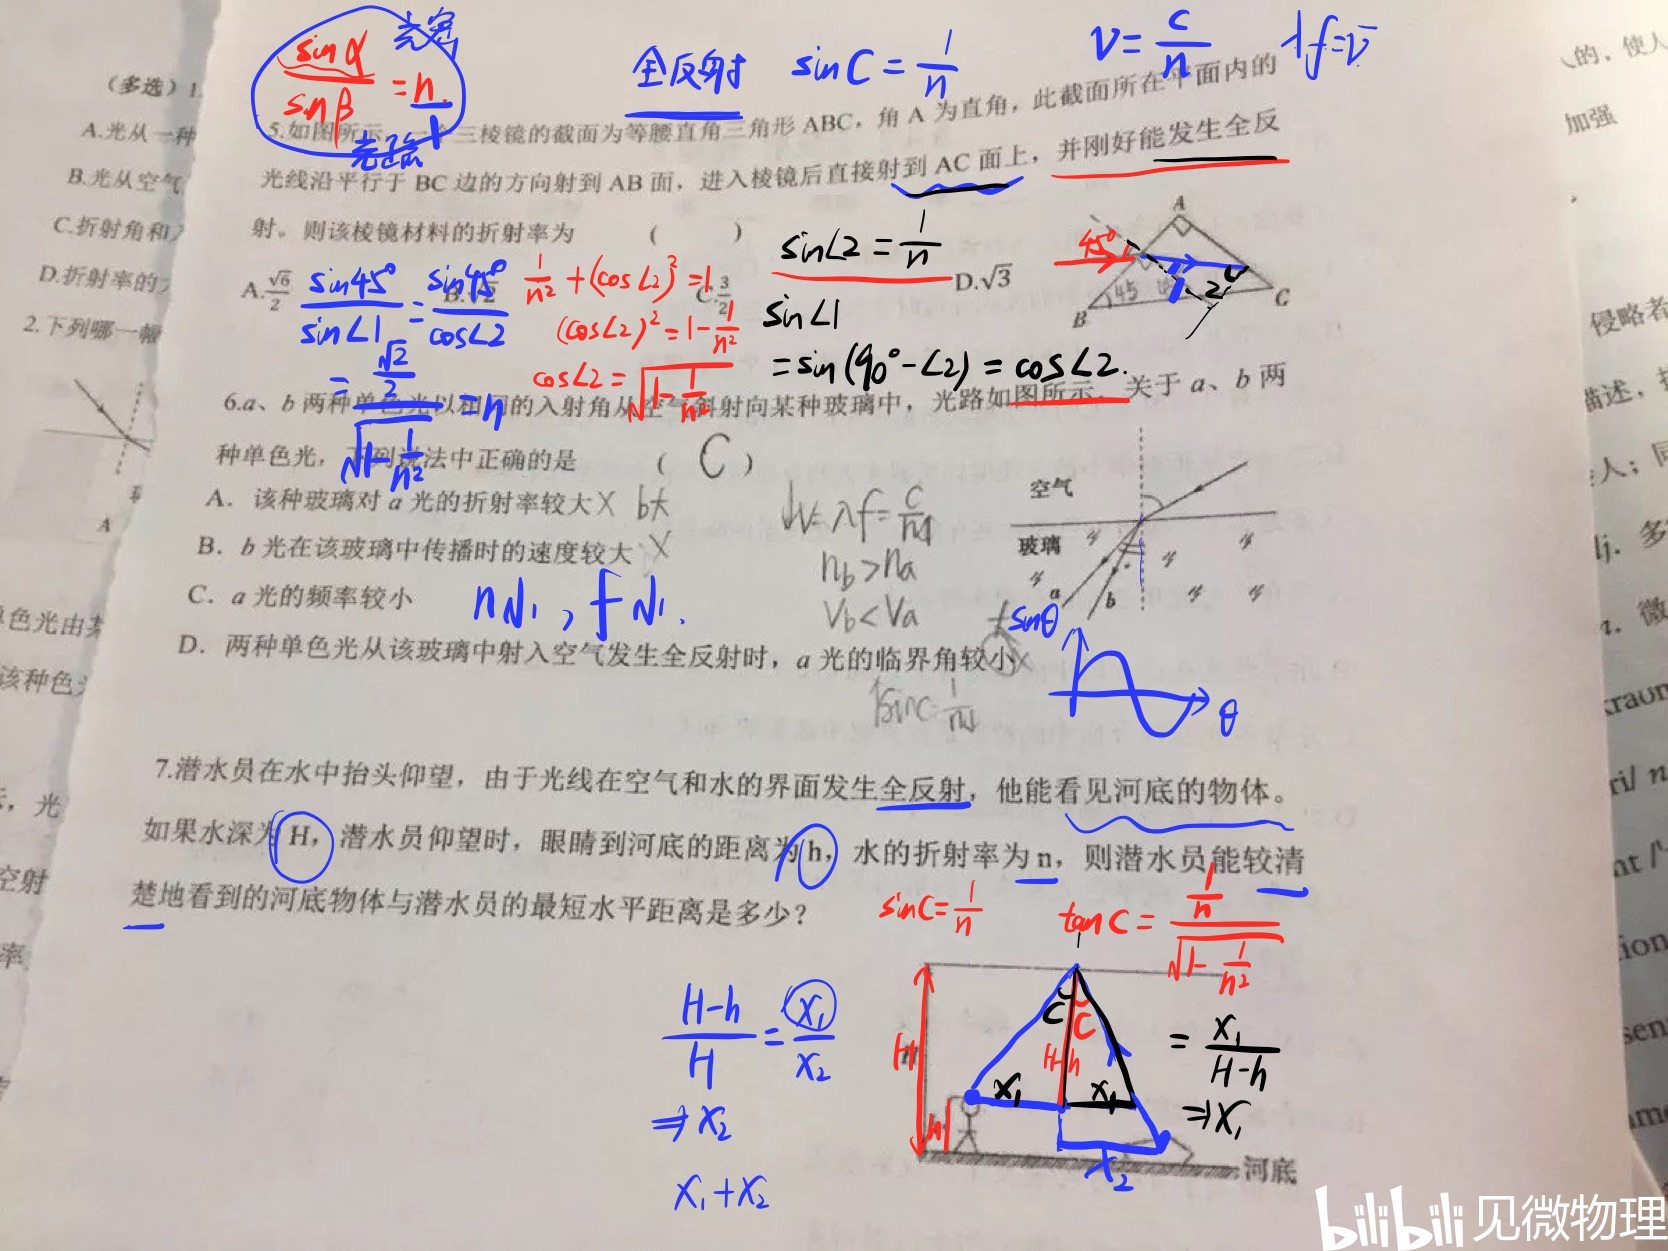 光密
sinα/sinβ = n/1
光疏
全反射 sinC = 1/n
v = c/n λf=v
(多选)1.
A.光从一种
B.光从空气
C.折射角和入
D.折射率的
2.下列哪一幅
A
5.如图所示,一个三棱镜的截面为等腰直角三角形 ABC,角 A 为直角,此截面所在平面内的
光线沿平行于 BC 边的方向射到 AB 面,进入棱镜后直接射到 AC 面上,并刚好能发生全反
射。则该棱镜材料的折射率为 ( )
A.√6/2 B.√2 C.3/2 D.√3
sin45°/sin∠1 = sin45°/cos∠2
= (√2/2)/√(1-1/n²) = n
1/n² + (cos∠2)² = 1
(cos∠2)² = 1-1/n²
cos∠2 = √(1-1/n²)
sin∠2 = 1/n
sin∠1
= sin(90°-∠2) = cos∠2.
A
45°
B 45 2 C
6.a、b 两种单色光以相同的入射角从空气斜射向某种玻璃中,光路如图所示.关于 a、b 两
种单色光,下列说法中正确的是 ( C )
A. 该种玻璃对 a 光的折射率较大 X b大
B. b 光在该玻璃中传播时的速度较大 X
C. a 光的频率较小 n小, f小.
D. 两种单色光从该玻璃中射入空气发生全反射时,a 光的临界角较小 X
↓v=λf=c/n↑
nb>na
vb<va
↑sinC=1/n↓
空气
玻璃
a b
sinθ
θ
7.潜水员在水中抬头仰望,由于光线在空气和水的界面发生全反射,他能看见河底的物体。
如果水深为 H,潜水员仰望时,眼睛到河底的距离为 h,水的折射率为 n,则潜水员能较清
楚地看到的河底物体与潜水员的最短水平距离是多少?
sinC=1/n tanC = (1/n)/√(1-1/n²)
= x₁/(H-h)
⇒x₁
(H-h)/H = x₁/x₂
⇒x₂
x₁+x₂
C C
H H-h
x₁ x₁
h
x₂
河底
单色光由某
该种色
,光
空射
率
的,使人
加强
侵略者
描述,
人;同
多
微
bilibili 见微物理